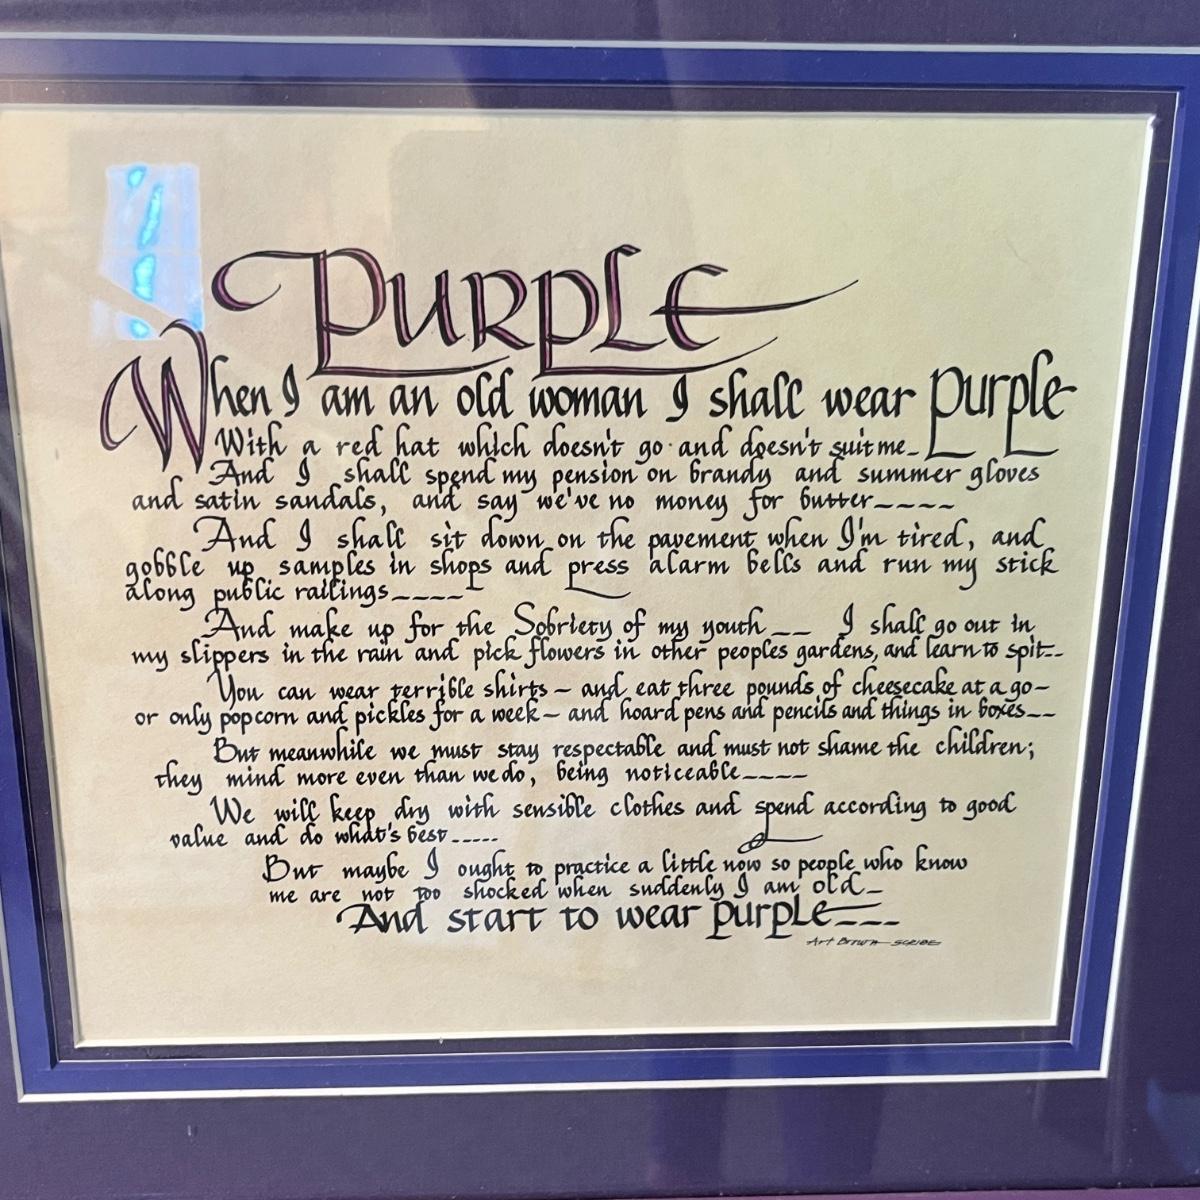 PURPLE
When I am an old woman I shall wear purple
With a red hat which doesn't go · and doesn't suit me_
And I shall spend my pension on brandy and summer gloves
and satin sandals, and say we've no money for butter____
And I shall sit down on the pavement when I'm tired, and
gobble up samples in shops and press alarm bells and run my stick
along public railings____
And make up for the Sobriety of my youth__ I shall go out in
my slippers in the rain and pick flowers in other peoples gardens, and learn to spit__
You can wear terrible shirts — and eat three pounds of cheesecake at a go—
or only popcorn and pickles for a week — and hoard pens and pencils and things in boxes__
But meanwhile we must stay respectable and must not shame the children;
they mind more even than we do, being noticeable____
We will keep dry with sensible clothes and spend according to good
value and do what's best.....
But maybe I ought to practice a little now so people who know
me are not too shocked when suddenly I am old_
And start to wear purple___
Art Brown SCRIBE